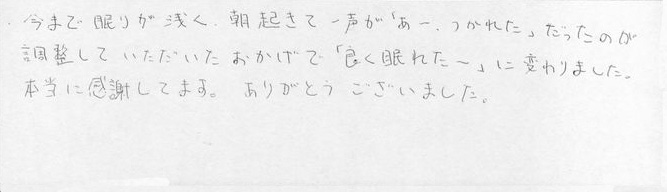 今まで眠りが浅く、朝起きて一声が「あー、つかれた」だったのが
調整していただいたおかげで「良く眠れた〜」に変わりました。
本当に感謝してます。ありがとうございました。